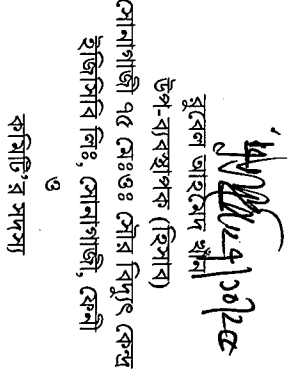 রুবেল আহমেদ খাঁন
উপ-ব্যবস্থাপক (হিসাব)
সোনাগাজী ৭৫ মেঃওঃ সৌর বিদ্যুৎ কেন্দ্র
ইজিসিবি লিঃ, সোনাগাজী, ফেনী
ও
কমিটি'র সদস্য